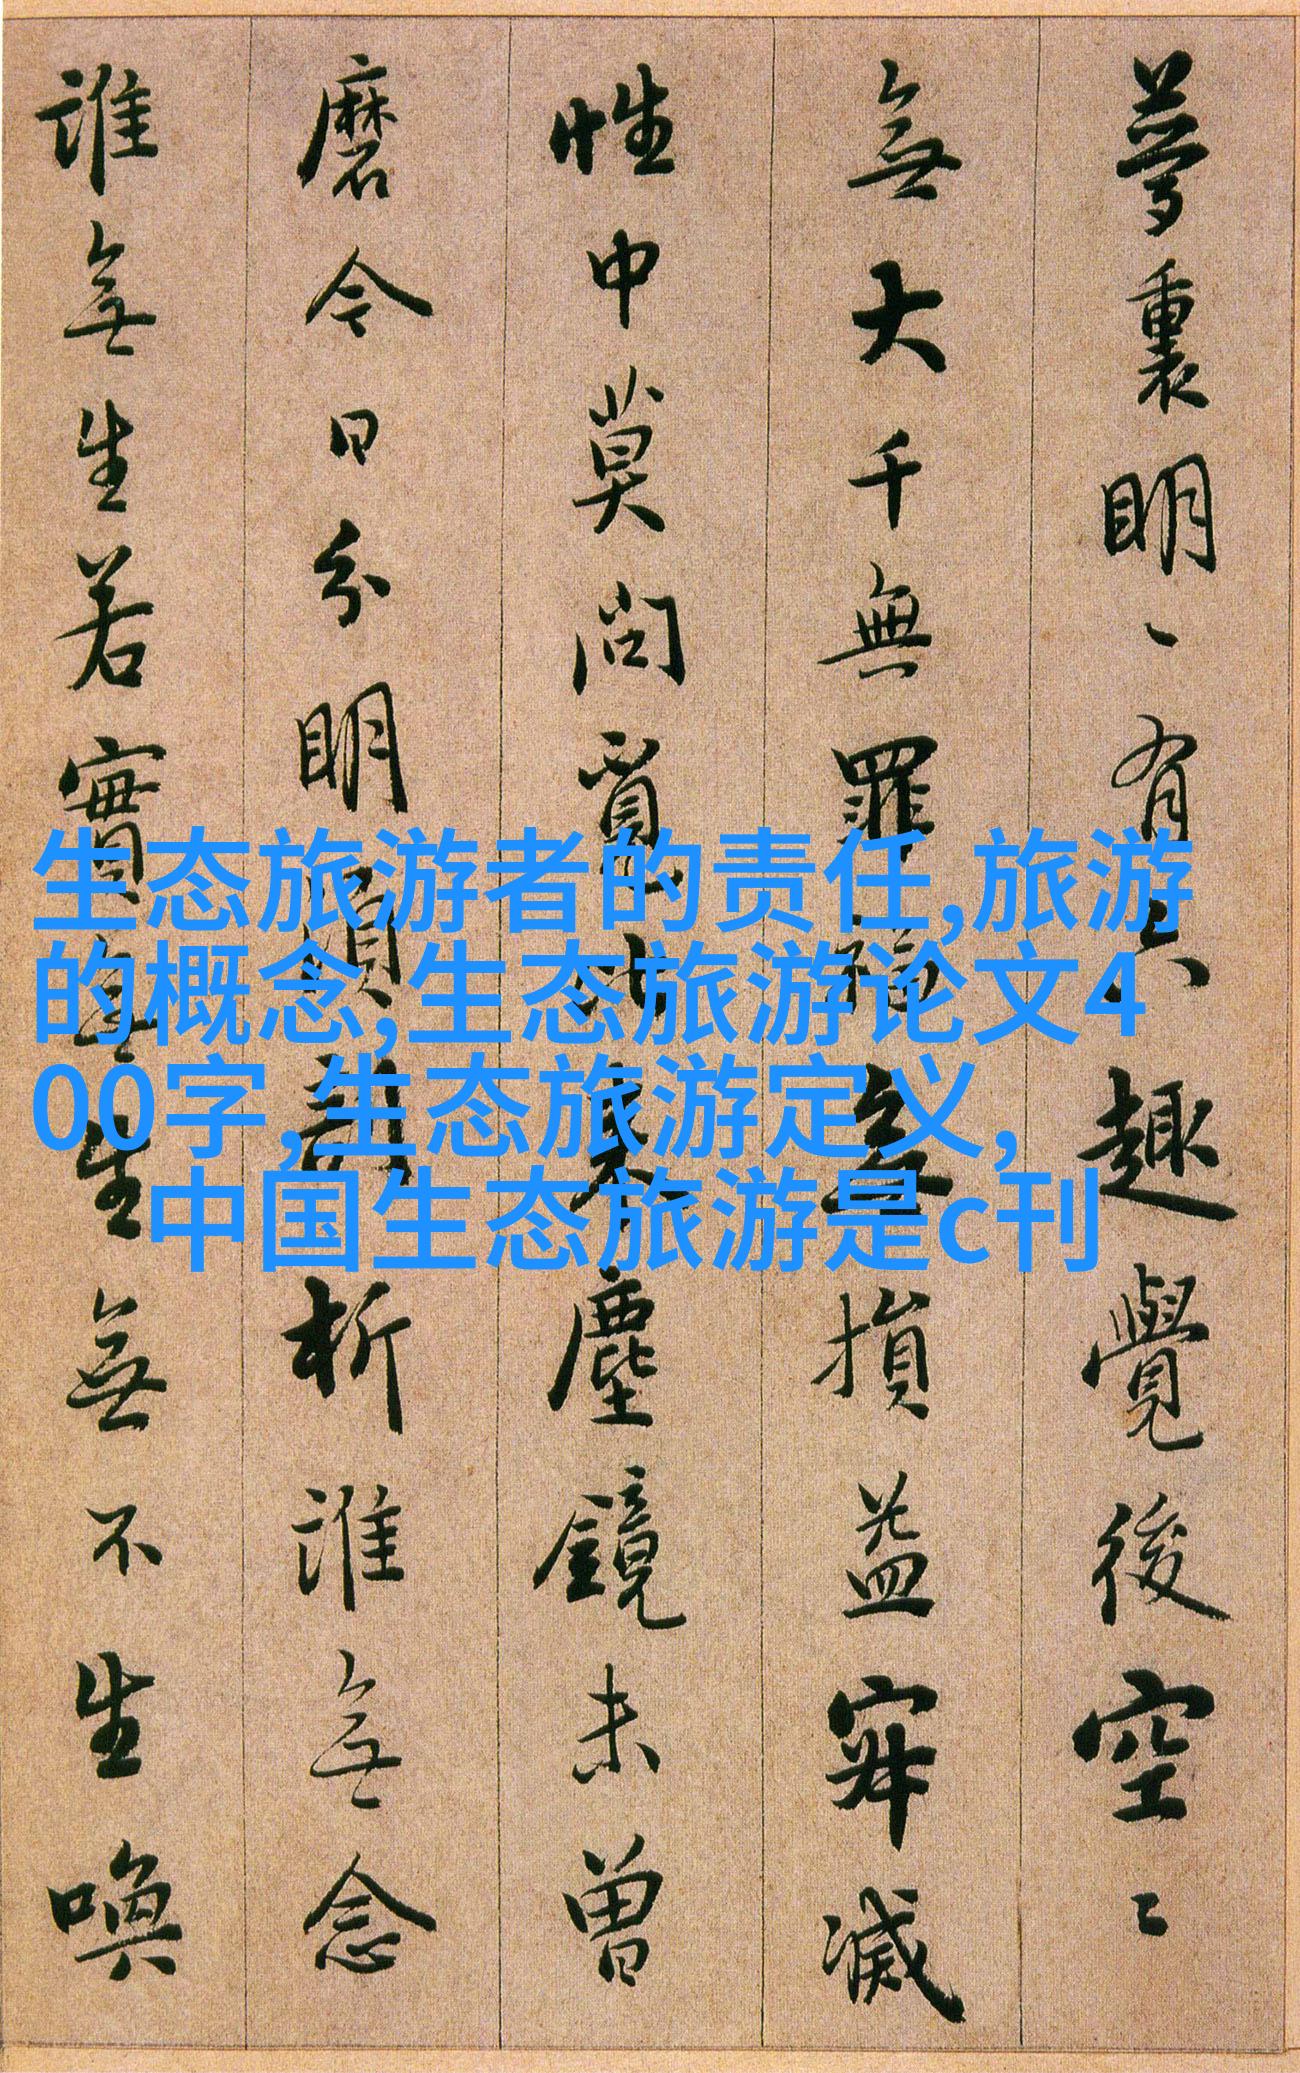 夢裏明〻有六趣覺後空〻
無大千無罪福無損益寂滅
性中莫問覓比来塵鏡未曾
磨今日分明須剖析誰無念
誰無生若實無生無不生喚
生态旅游者的责任,旅游
的概念,生态旅游论文4
00字,生态旅游定义,
中国生态旅游是c刊